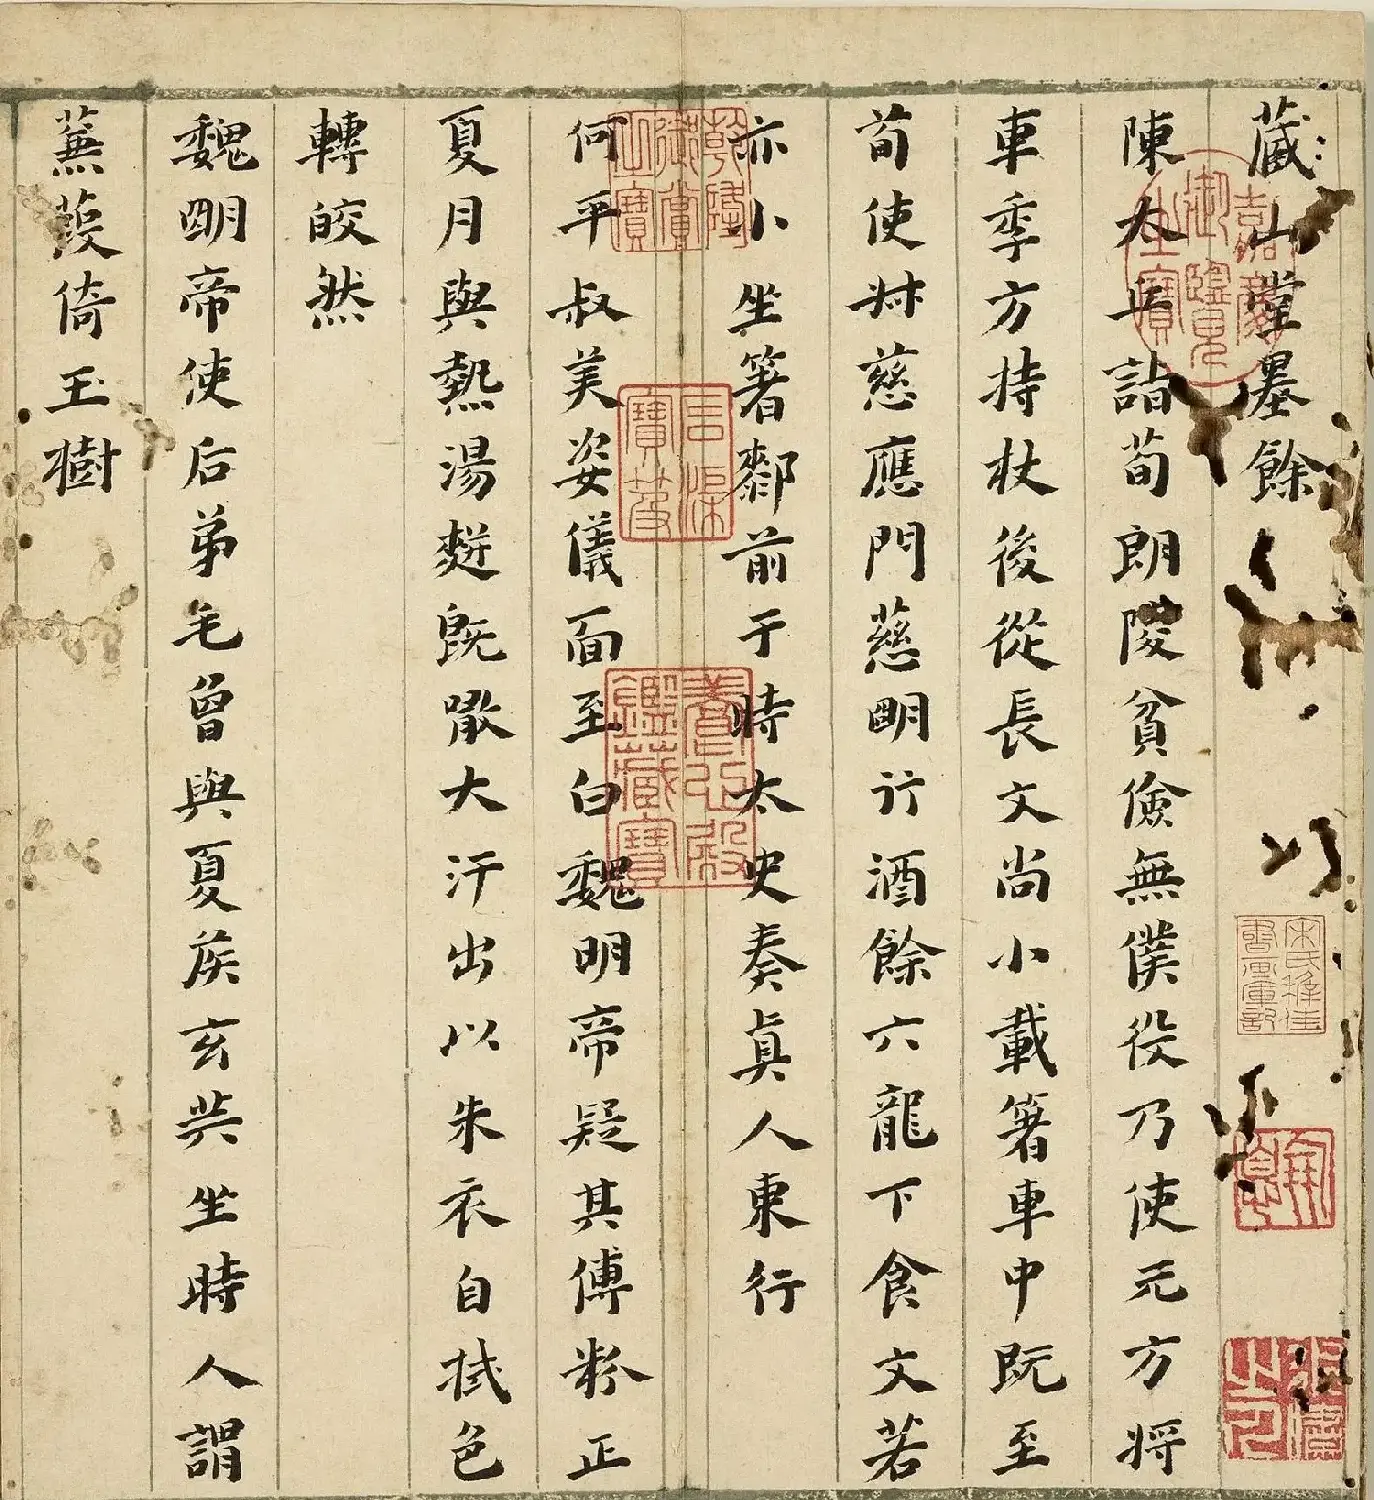 藏山堂墨餘
陳太丘詣荀朗陵貧儉無僕役乃使元方將
車季方持杖後從長文尚小載箸車中既至
荀使叔慈應門慈朙行酒餘六龍下食文若
亦小坐箸厀前于時太史奏真人東行
何平叔美姿儀面至白魏明帝疑其傅粉正
夏月與熱湯䴵既噉大汗出以朱衣自拭色
轉皎然
魏朙帝使后弟毛曾與夏侯玄共坐時人謂
蒹葭倚玉樹
嘉慶御覽之寶
乾隆御賞之寶
石渠寶笈
養心殿鑑藏寶